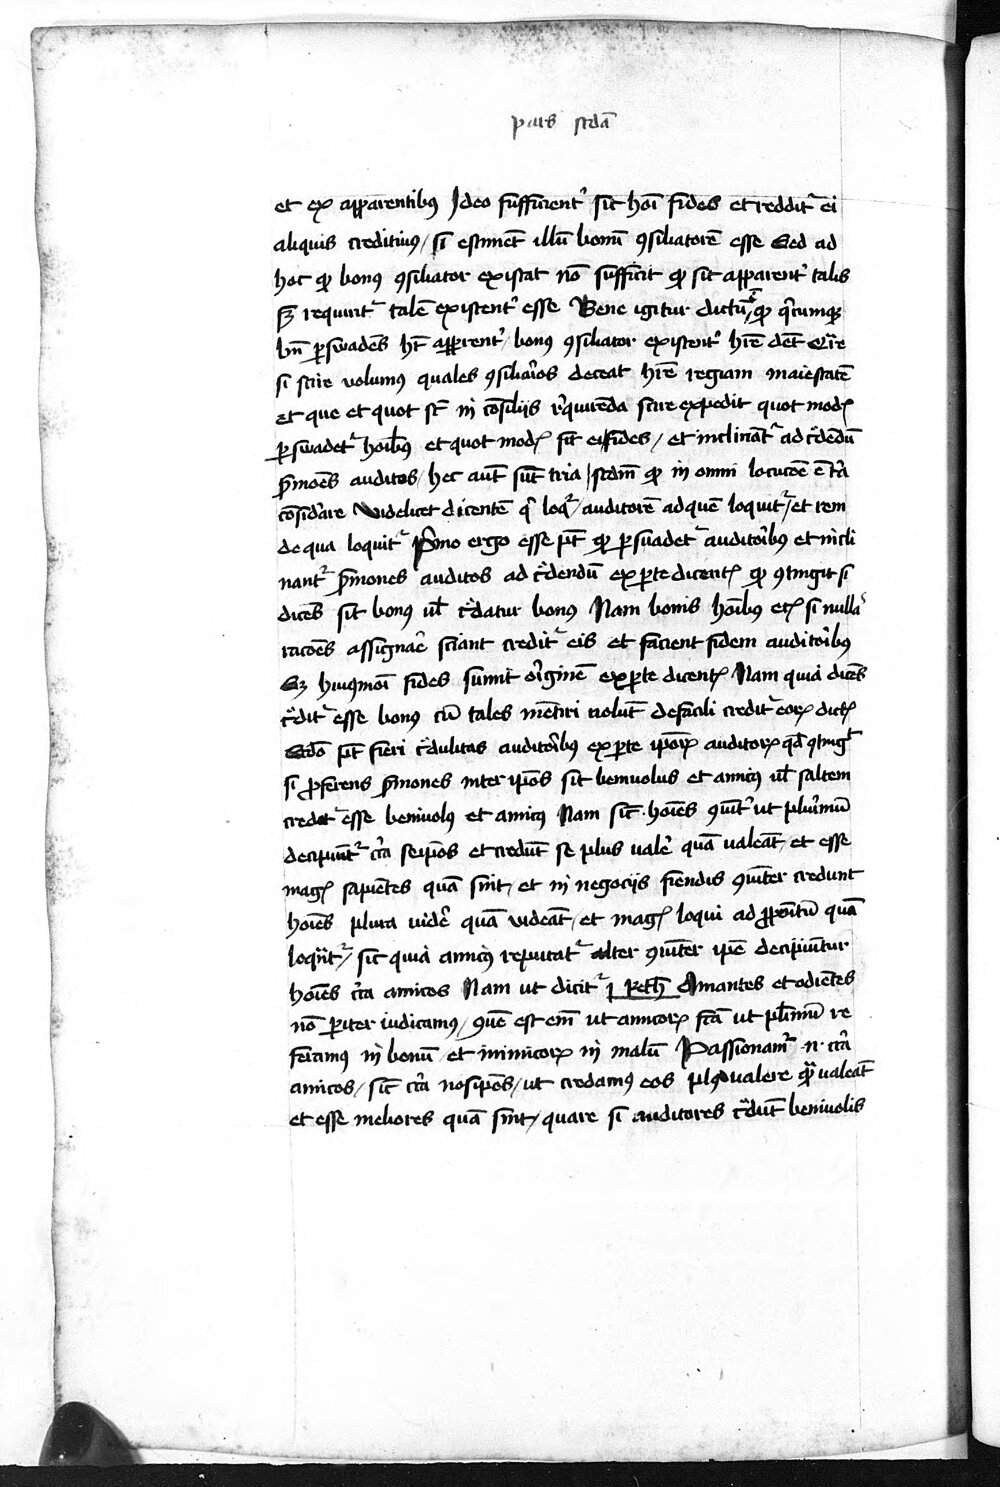 pars scdā
et ex apparentibus Ideo sufficient' sit hoī fides et reddit' ei
aliquis creditiuus / si estiment illū bonū 9siliatorē esse Sed ad
hoc qꝫ bonus 9siliator existat nō sufficit qꝫ sit apparent' talis
sꝫ requirit' talē existent' esse Bene igitur dictū / qꝫ
bn̄ pswadēs hēt apparent' / bonus 9siliator existent' hr̄e dēt Quare
si scire volumus quales 9siliarios deceat hr̄e regiam maiestatē
et que et quot st̄ in cōsiliis requirenda scire expedit quot modꝭ
pswadet' hoībus et quot modꝭ fit ei fides / et inclinant' ad c'dendū
s'mōes auditos / hec aut̄ sūt tria / scdm qꝫ in omni locucōe ē tria
cōsid'are Videlicet dicentē qi loqr' / auditorē ad quē loquit' / et rem
de qua loquit' Primo ergo esse pōt qꝫ psuadet' auditoribus et incli
nant' s'mones auditos ad c'dendū ex parte dicentꝭ qꝫ 9tingit si
dicēs sit bonus ul' c'datur bonus Nam bonis hoībus etꝭ si nullas
racōes assignare sciant credit' eis et facient fidem auditoribus
Et huiusmōi fides sumit originē ex parte dicentꝭ Nam quia dicēs
c'dit' esse bonus cū tales mētiri nolunt de facili credit' eorꝝ dictꝭ
Scdo pōt fieri c'dulitas auditoribus ex parte ipsorꝝ auditorꝝ qd̄ 9tingit
si proferens s'mones inter ipsos sit beniuolus et amicus ul' saltem
credat' esse beniuolus et amicus Nam sic hoīes 9iūt' ut plurimū
decipiunt' c'ca seipsos et credunt se plus ualere quā ualeāt / et esse
magꝭ sapiētes quā sint / et in negociis fiendis 9iūter credunt
hoīes plura uidere quā videāt / et magꝭ loqui ad propositū quā
loquāt' / sic quia amicus reputat' alter 9iūter ipse decipiuntur
hoīes c'ca amicos Nam ut dicit' j Reth Amantes et odiētes
nō pariter iudicamus / 9iūe est em̄ ut amicorꝝ fc̄a ut plīmū re
feramus in bonū / et inimicorꝝ in malū Passionam' .n. c'ca
amicos / sic c'ca nosipsos / ut credamus eos plus valere quā valeāt
et esse meliores quā sint / quare si auditores c'dūt beniuolis